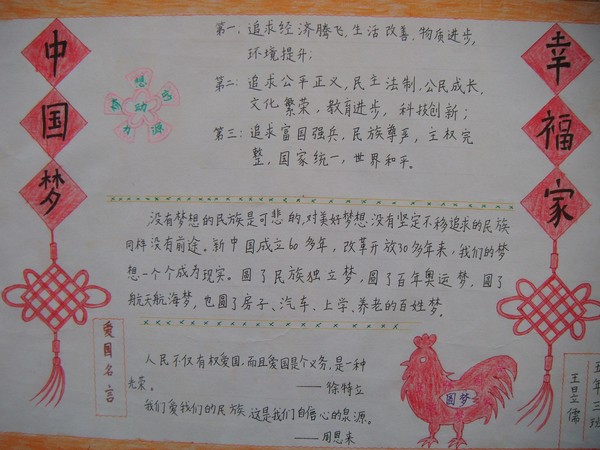 中国梦
幸福家
第一：追求经济腾飞，生活改善，物质进步，
环境提升；
第二：追求公平正义，民主法制，公民成长，
文化繁荣，教育进步，科技创新；
第三：追求富国强兵，民族尊严，主权完
整，国家统一，世界和平。
想
动
力
源
没有梦想的民族是可悲的，对美好梦想没有坚定不移追求的民族
同样没有前途。新中国成立60多年，改革开放30多年来，我们的梦
想一个个成为现实。圆了民族独立梦，圆了百年奥运梦，圆了
航天航海梦，也圆了房子、汽车、上学、养老的百姓梦。
爱国名言
人民不仅有权爱国，而且爱国是个义务，是一种
光荣。
——徐特立
我们爱我们的民族，这是我们自信心的泉源。
——周恩来
圆梦
五年三班
王昱儒